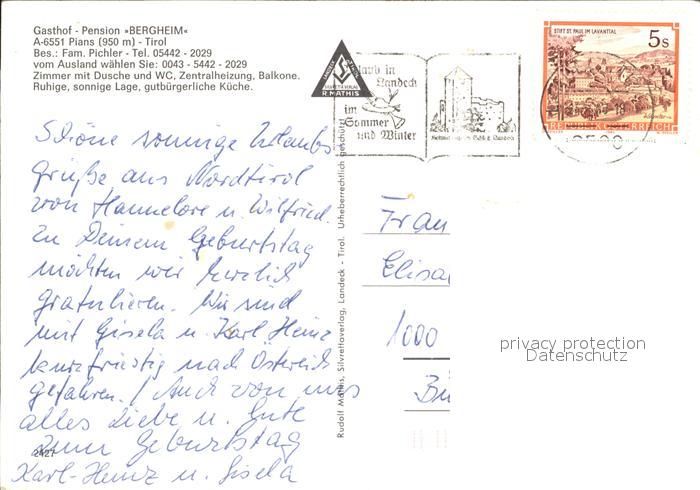 Gasthof - Pension »BERGHEIM«
A-6551 Pians (950 m) - Tirol
Bes.: Fam. Pichler - Tel. 05442 - 2029
vom Ausland wählen Sie: 0043 - 5442 - 2029
Zimmer mit Dusche und WC, Zentralheizung, Balkone.
Ruhige, sonnige Lage, gutbürgerliche Küche.
R. MATHIS
Urlaub in
Landeck
im
Sommer
und Winter
STIFT ST. PAUL IM LAVANTTAL
5 S
REPUBLIK ÖSTERREICH
Schöne sonnige Urlaubs
grüße aus Nordtirol
von Hannelore u. Wilfried.
Zu Deinem Geburtstag
möchten wir herzlich
gratulieren. Wir sind
mit Gisela u. Karl-Heinz
kurzfristig nach Österreich
gefahren. / Auch von uns
alles Liebe u. Gute
zum Geburtstag
Karl-Heinz u. Gisela
2427
Rudolf Mathis, Silvrettaverlag, Landeck - Tirol. Urheberrechtlich geschützt
Frau
Elisa
1000
privacy protection
Datenschutz